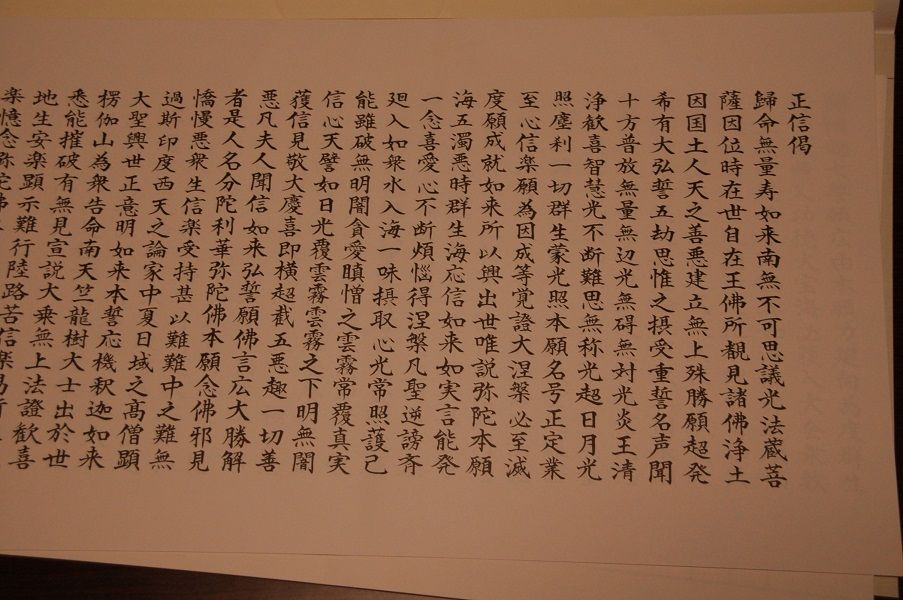 正信偈
歸命無量寿如来南無不可思議光法蔵菩
薩因位時在世自在王佛所覩見諸佛浄土
因国土人天之善悪建立無上殊勝願超発
希有大弘誓五劫思惟之摂受重誓名声聞
十方普放無量無辺光無碍無対光炎王清
浄歓喜智慧光不断難思無称光超日月光
照塵刹一切群生蒙光照本願名号正定業
至心信楽願為因成等覚證大涅槃必至滅
度願成就如来所以興出世唯説弥陀本願
海五濁悪時群生海応信如来如実言能発
一念喜愛心不断煩悩得涅槃凡聖逆謗斉
廻入如衆水入海一味摂取心光常照護已
能雖破無明闇貪愛瞋憎之雲霧常覆真実
信心天譬如日光覆雲霧雲霧之下明無闇
獲信見敬大慶喜即横超截五悪趣一切善
悪凡夫人聞信如来弘誓願佛言広大勝解
者是人名分陀利華弥陀佛本願念佛邪見
憍慢悪衆生信楽受持甚以難難中之難無
過斯印度西天之論家中夏日域之髙僧顕
大聖興世正意明如来本誓応機釈迦如来
楞伽山為衆告命南天竺龍樹大士出於世
悉能摧破有無見宣説大乗無上法證歓喜
地生安楽顕示難行陸路苦信楽易行
楽憶念弥陀佛